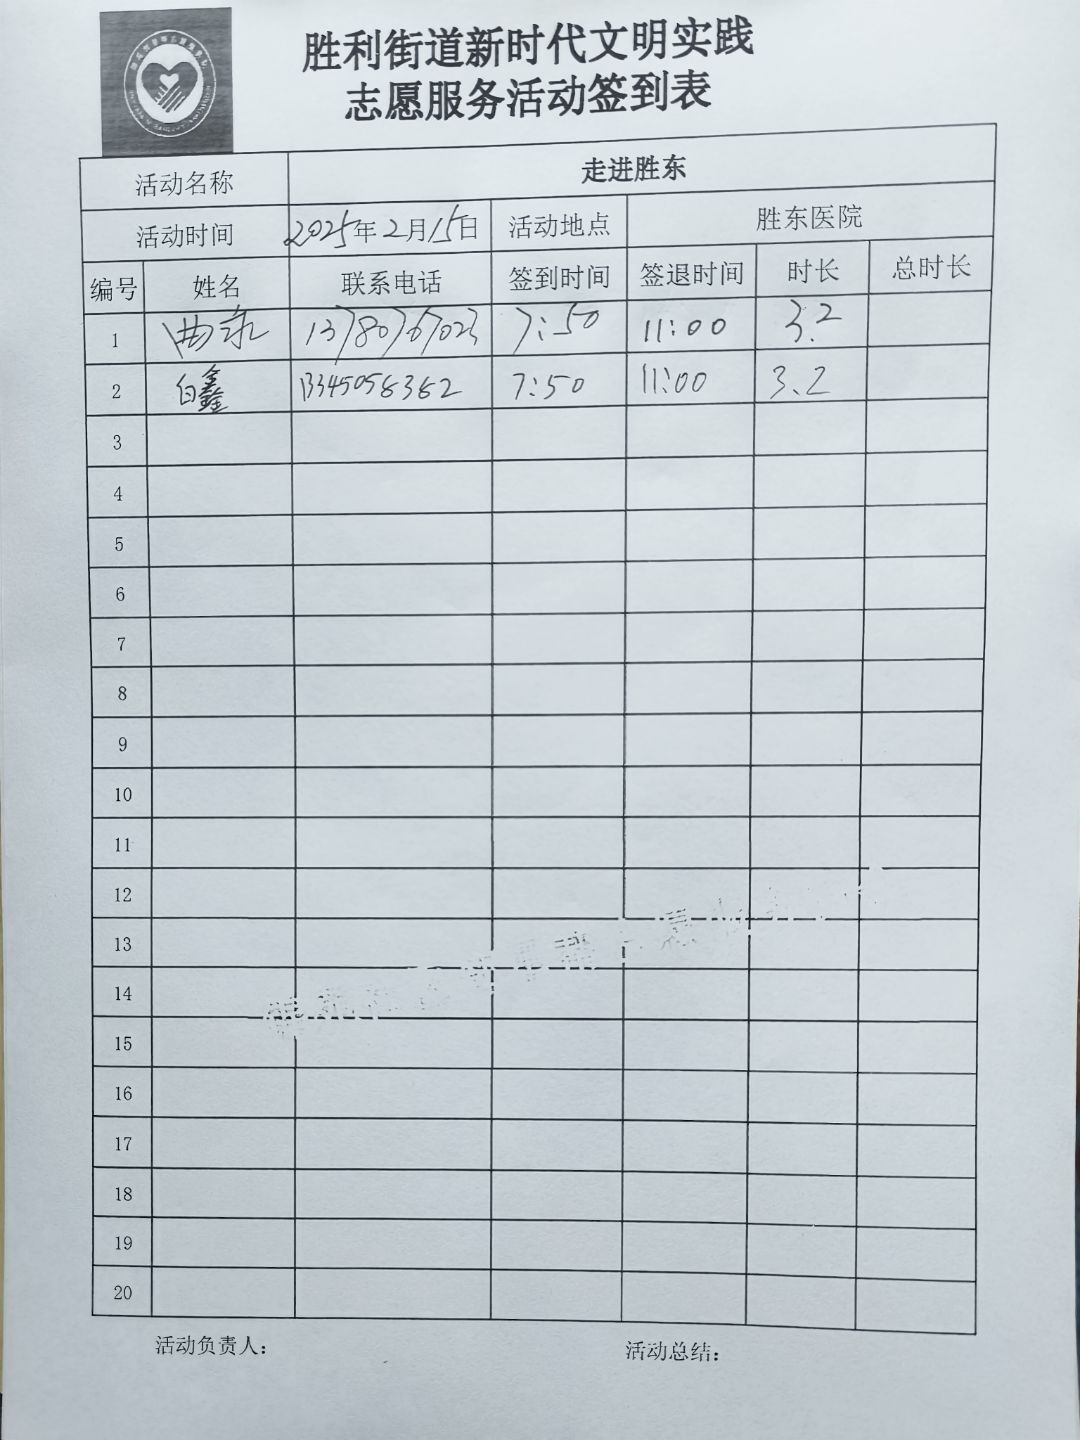 胜利街道新时代文明实践
志愿服务活动签到表
活动名称 走进胜东
活动时间 2025年2月15日 活动地点 胜东医院
编号 姓名 联系电话 签到时间 签退时间 时长 总时长
1 13780767023 7:50 11:00 3.2
2 白鑫 13345058362 7:50 11:00 3.2
3
4
5
6
7
8
9
10
11
12
13
14
15
16
17
18
19
20
活动负责人： 活动总结：